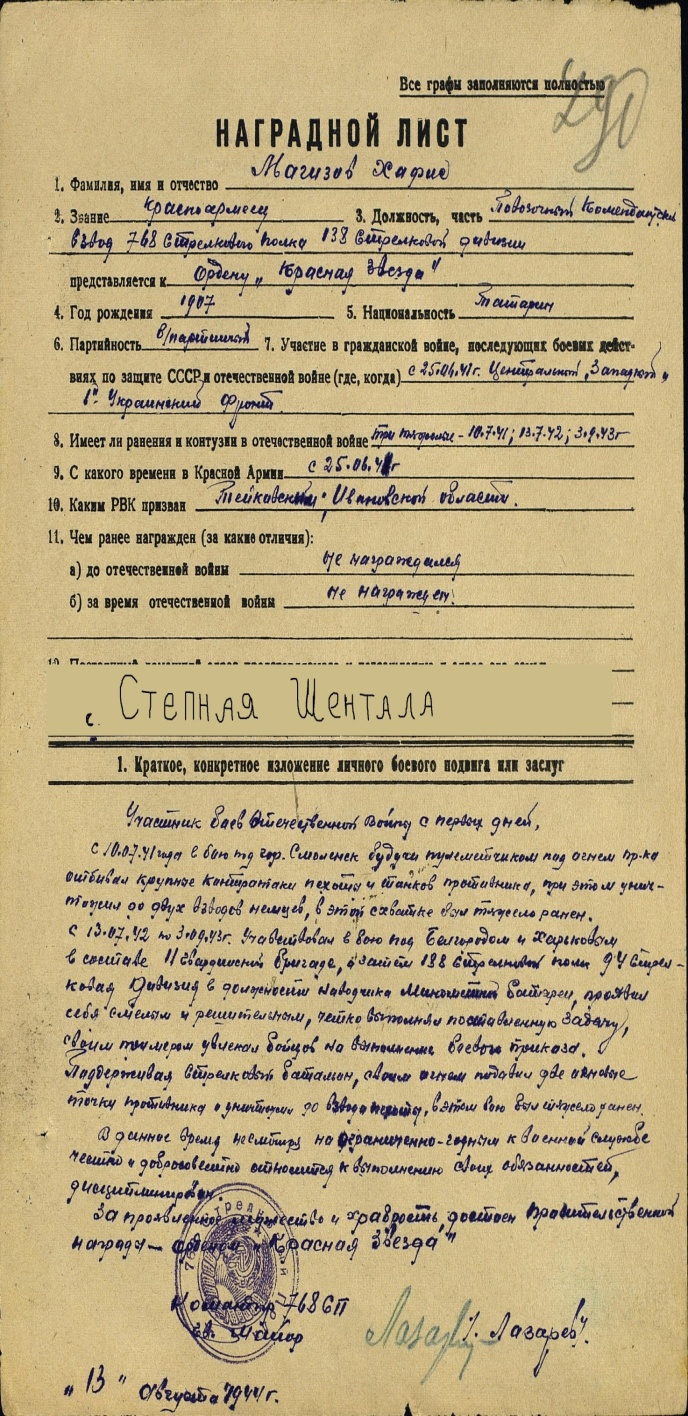 Все графы заполняются полностью
290
НАГРАДНОЙ ЛИСТ
1. Фамилия, имя и отчество Магизов Хафис
2. Звание Красноармеец 3. Должность, часть Повозочный Комендантский
взвод 768 Стрелкового полка 138 Стрелковой дивизии
представляется к Ордену „Красная Звезда"
4. Год рождения 1907 5. Национальность Татарин
6. Партийность б/партийный 7. Участие в гражданской войне, последующих боевых дейст-
виях по защите СССР и отечественной войне (где, когда) с 25.06.41г. Центральной, Западной,
1й Украинский Фронт.
8. Имеет ли ранения и контузии в отечественной войне три тяжелые - 10.7.41; 13.7.42; 3.9.43г
9. С какого времени в Красной Армии с 25.06.41г
10. Каким РВК призван Тейковский, Ивановской области.
11. Чем ранее награжден (за какие отличия):
а) до отечественной войны не награждался
б) за время отечественной войны не награжден.
с. СТЕПНАЯ ШЕНТАЛА
1. Краткое, конкретное изложение личного боевого подвига или заслуг
Участник боев Отечественной Войны с первых дней,
с 10.07.41 года в бою под гор. Смоленск будучи пулеметчиком под огнем пр-ка
отбивал крупные контратаки пехоты и танков противника, при этом унич-
тожил до двух взводов немцев, в этой схватке был тяжело ранен.
С 13.07.42 по 3.09.43г. Участвовал в бою под Белгородом и Харьковым
в составе 11 Гвардийской бригады, а затем 188 Стрелковый полк 94 Стрел-
ковая Дивизия в должности наводчика Минометной Батареи, проявил
себя смелым и решительным, четко выполнял поставленную задачу,
своим примером увлекал бойцов на выполнение боевого приказа.
Поддерживая Стрелковый Батальон, своим огнем подавил две огневые
точки противника и уничтожил до взвода пехоты, в этом бою был тяжело ранен.
В данное время несмотря на ограниченно-годным к военной службе
честно и добросовестно относится к выполнению своих обязанностей,
дисциплинирован.
За проявленное мужество и храбрость, достоин Правительственной
награды - орденом „Красная Звезда"
Командир 768 СП
Гв. Майор Лазарев /. Лазарев/.
„13" Августа 1944 г.